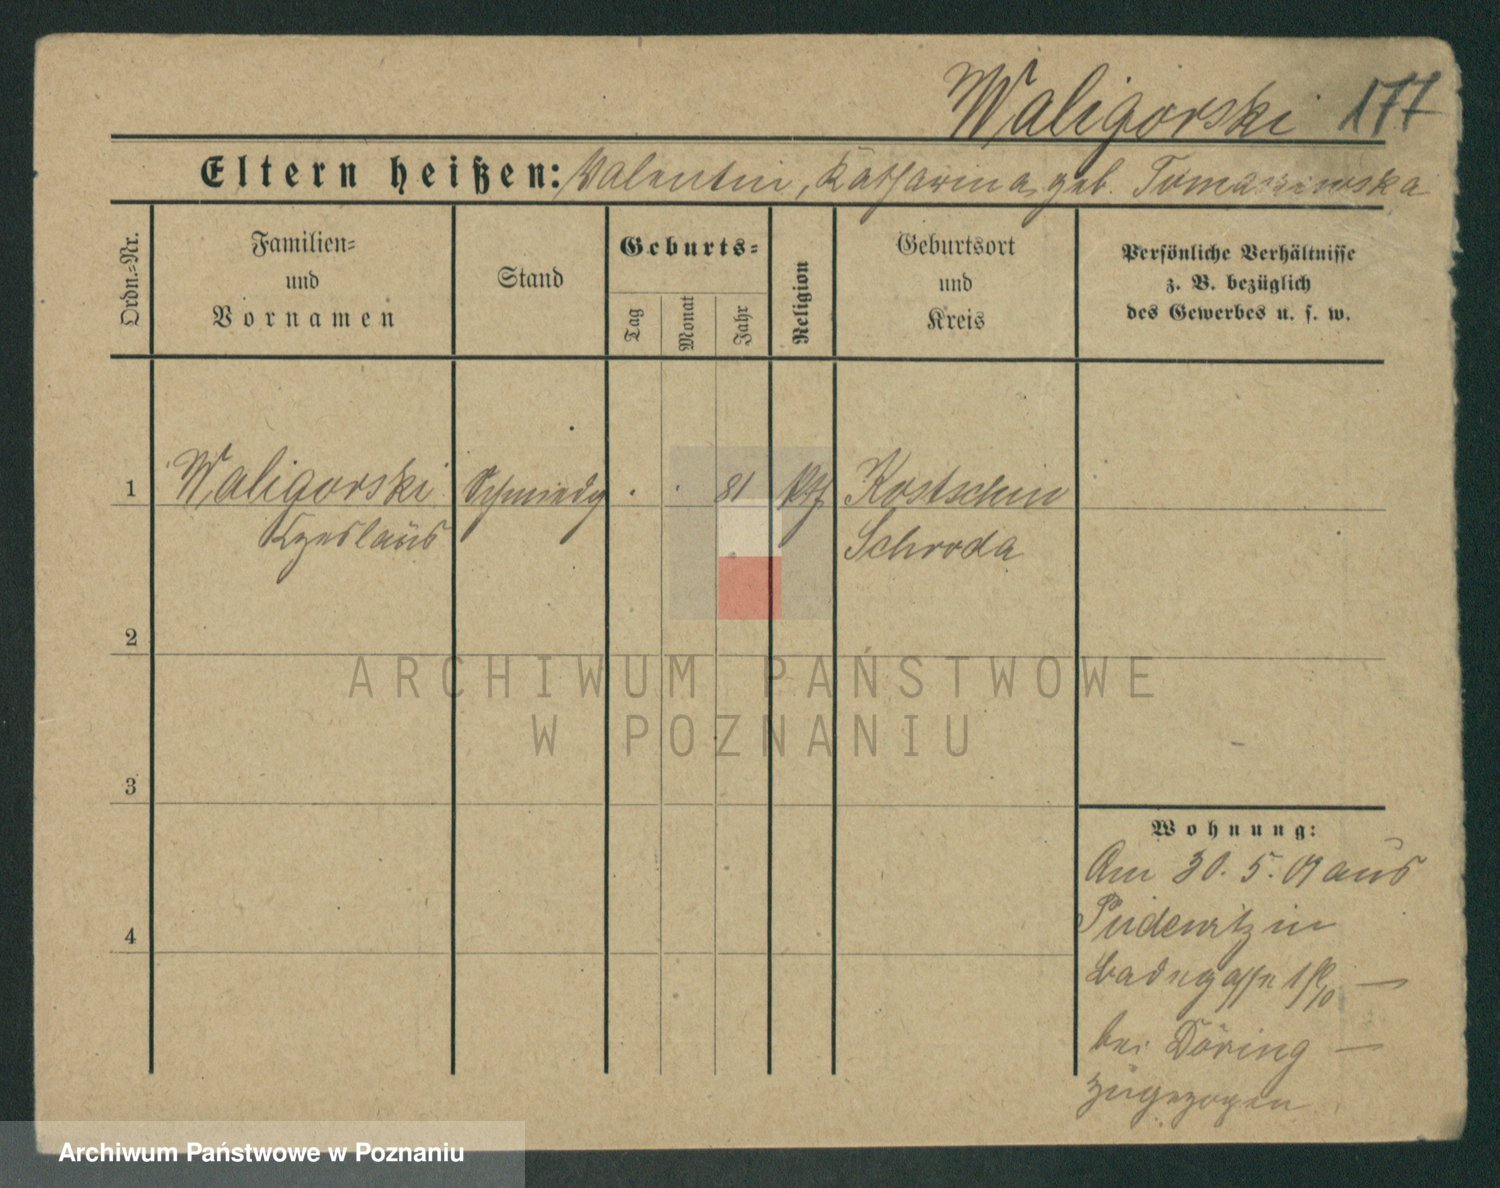 Waligorski 177
Eltern heißen: Valentin, Katharina geb. Tomaszewska
Ordn.-Nr.
Familien-
und
Vornamen
Stand
Geburts-
Tag
Monat
Jahr
Religion
Geburtsort
und
Kreis
Persönliche Verhältnisse
z. B. bezüglich
des Gewerbes u. s. w.
1 Waligorski 81 Kostschin
Schroda
2
3
4
Wohnung:
Am 30. 5. 09 aus
Pudewitz in
bei Döring —
zugezogen
ARCHIWUM PAŃSTWOWE
W POZNANIU
Archiwum Państwowe w Poznaniu